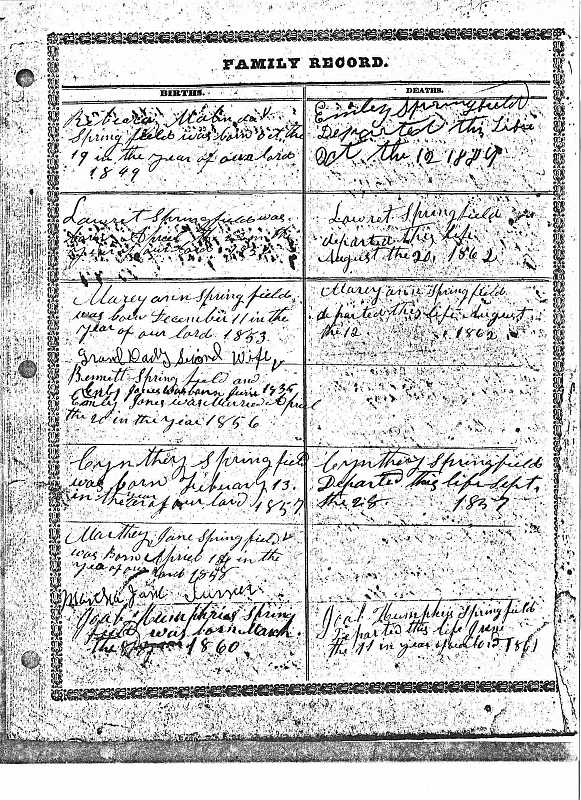 FAMILY RECORD.
BIRTHS.
Springfield was born Oct the
19 in the year of our lord
1849
Lawret Springfield was
Marey ann Springfield
was born December 11 in the
year of our lord 1853
Grand Dady Second Wife
Bennett Springfield and
Emily Jones was born June 1835
Emily Jones was Married Apriel
the 20 in the year 1856
Cynthey Springfield
was born February 13
in the year of our lord 1857
Marthey Jane Springfield
was Born Apriel 18 in the
year of our lord 1858
Martha Jane Turner
Joab Humphries Spring
field was born March
the 1860
DEATHS.
Emiley Springfield
Departed this Life
Oct the 12 1889
Lawret Springfield
departed this life
August the 20, 1862
Marey ann Springfield
departed this life August
the 12 1862
Cynthey Springfield
Departed this life Sept.
the 28 1857
Joab Humphis Springfield
Departed this life June
the 11 in year of our lord 1861